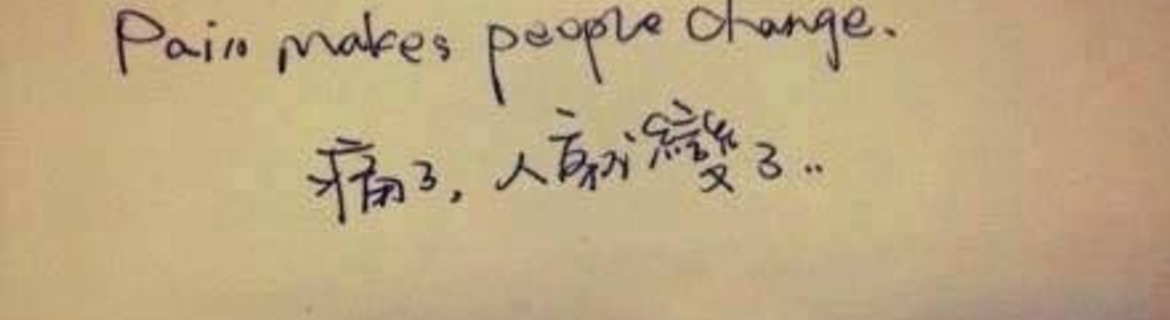 Pain makes people change.
痛了，人就變了..